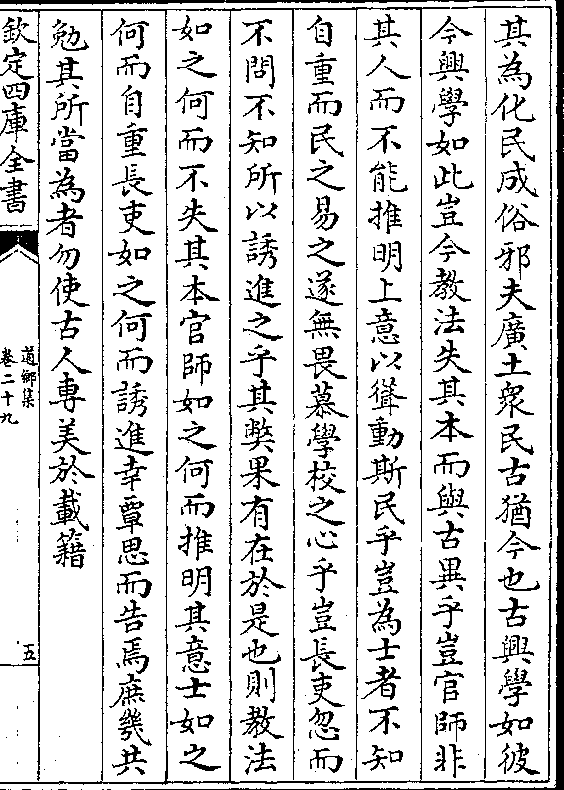 其為化民成俗邪夫廣土衆民古猶今也古興學如彼
今興學如此豈今教法失其本而與古異乎豈官師非
其人而不能推明上意以聳動斯民乎豈為士者不知
自重而民之易之遂無畏慕學校之心乎豈長吏忽而
不問不知所以誘進之乎其弊果有在於是也則教法
如之何而不失其本官師如之何而推明其意士如之
何而自重長吏如之何而誘進幸覃思而告焉庶幾共
勉其所當為者勿使古人専美於載籍
欽定四庫全書
道鄉集
卷二十九
五